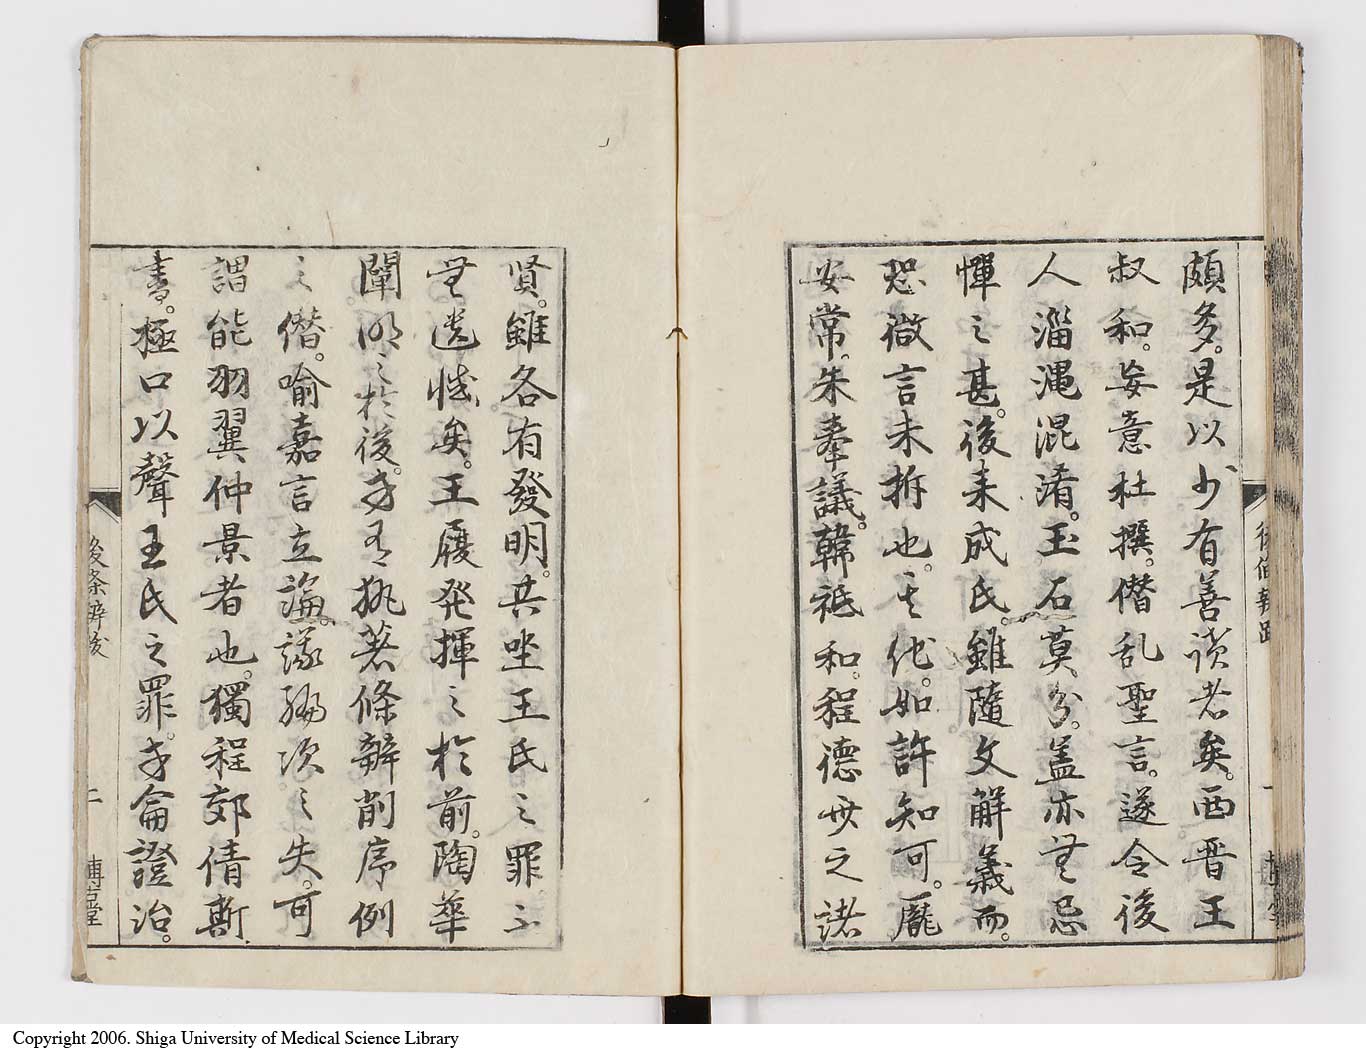 頗多。是以少有善讀者矣。西晋王
叔和。妄意杜撰。僣乱聖言。遂令後
人淄澠混淆。玉石莫分。盖亦無忌
憚之甚。後来成氏。雖隨文解義。而
恐微言未拆也。其他。如許知可。龐
安常。朱奉議。韓祗和。程德
之諸
賢。雖各有發明。共坐王氏之罪。不
無遺憾矣。王履発揮之於前。陶華
闡明之於後。方有執著條辨削序例
之僣。喻嘉言立論議編次之失。可
謂能羽翼仲景者也。獨程郊倩
書。極口以聲王氏之罪。方侖證治。
後条辨
一
後条辨
二
Copyright 2006. Shiga University of Medical Science Library